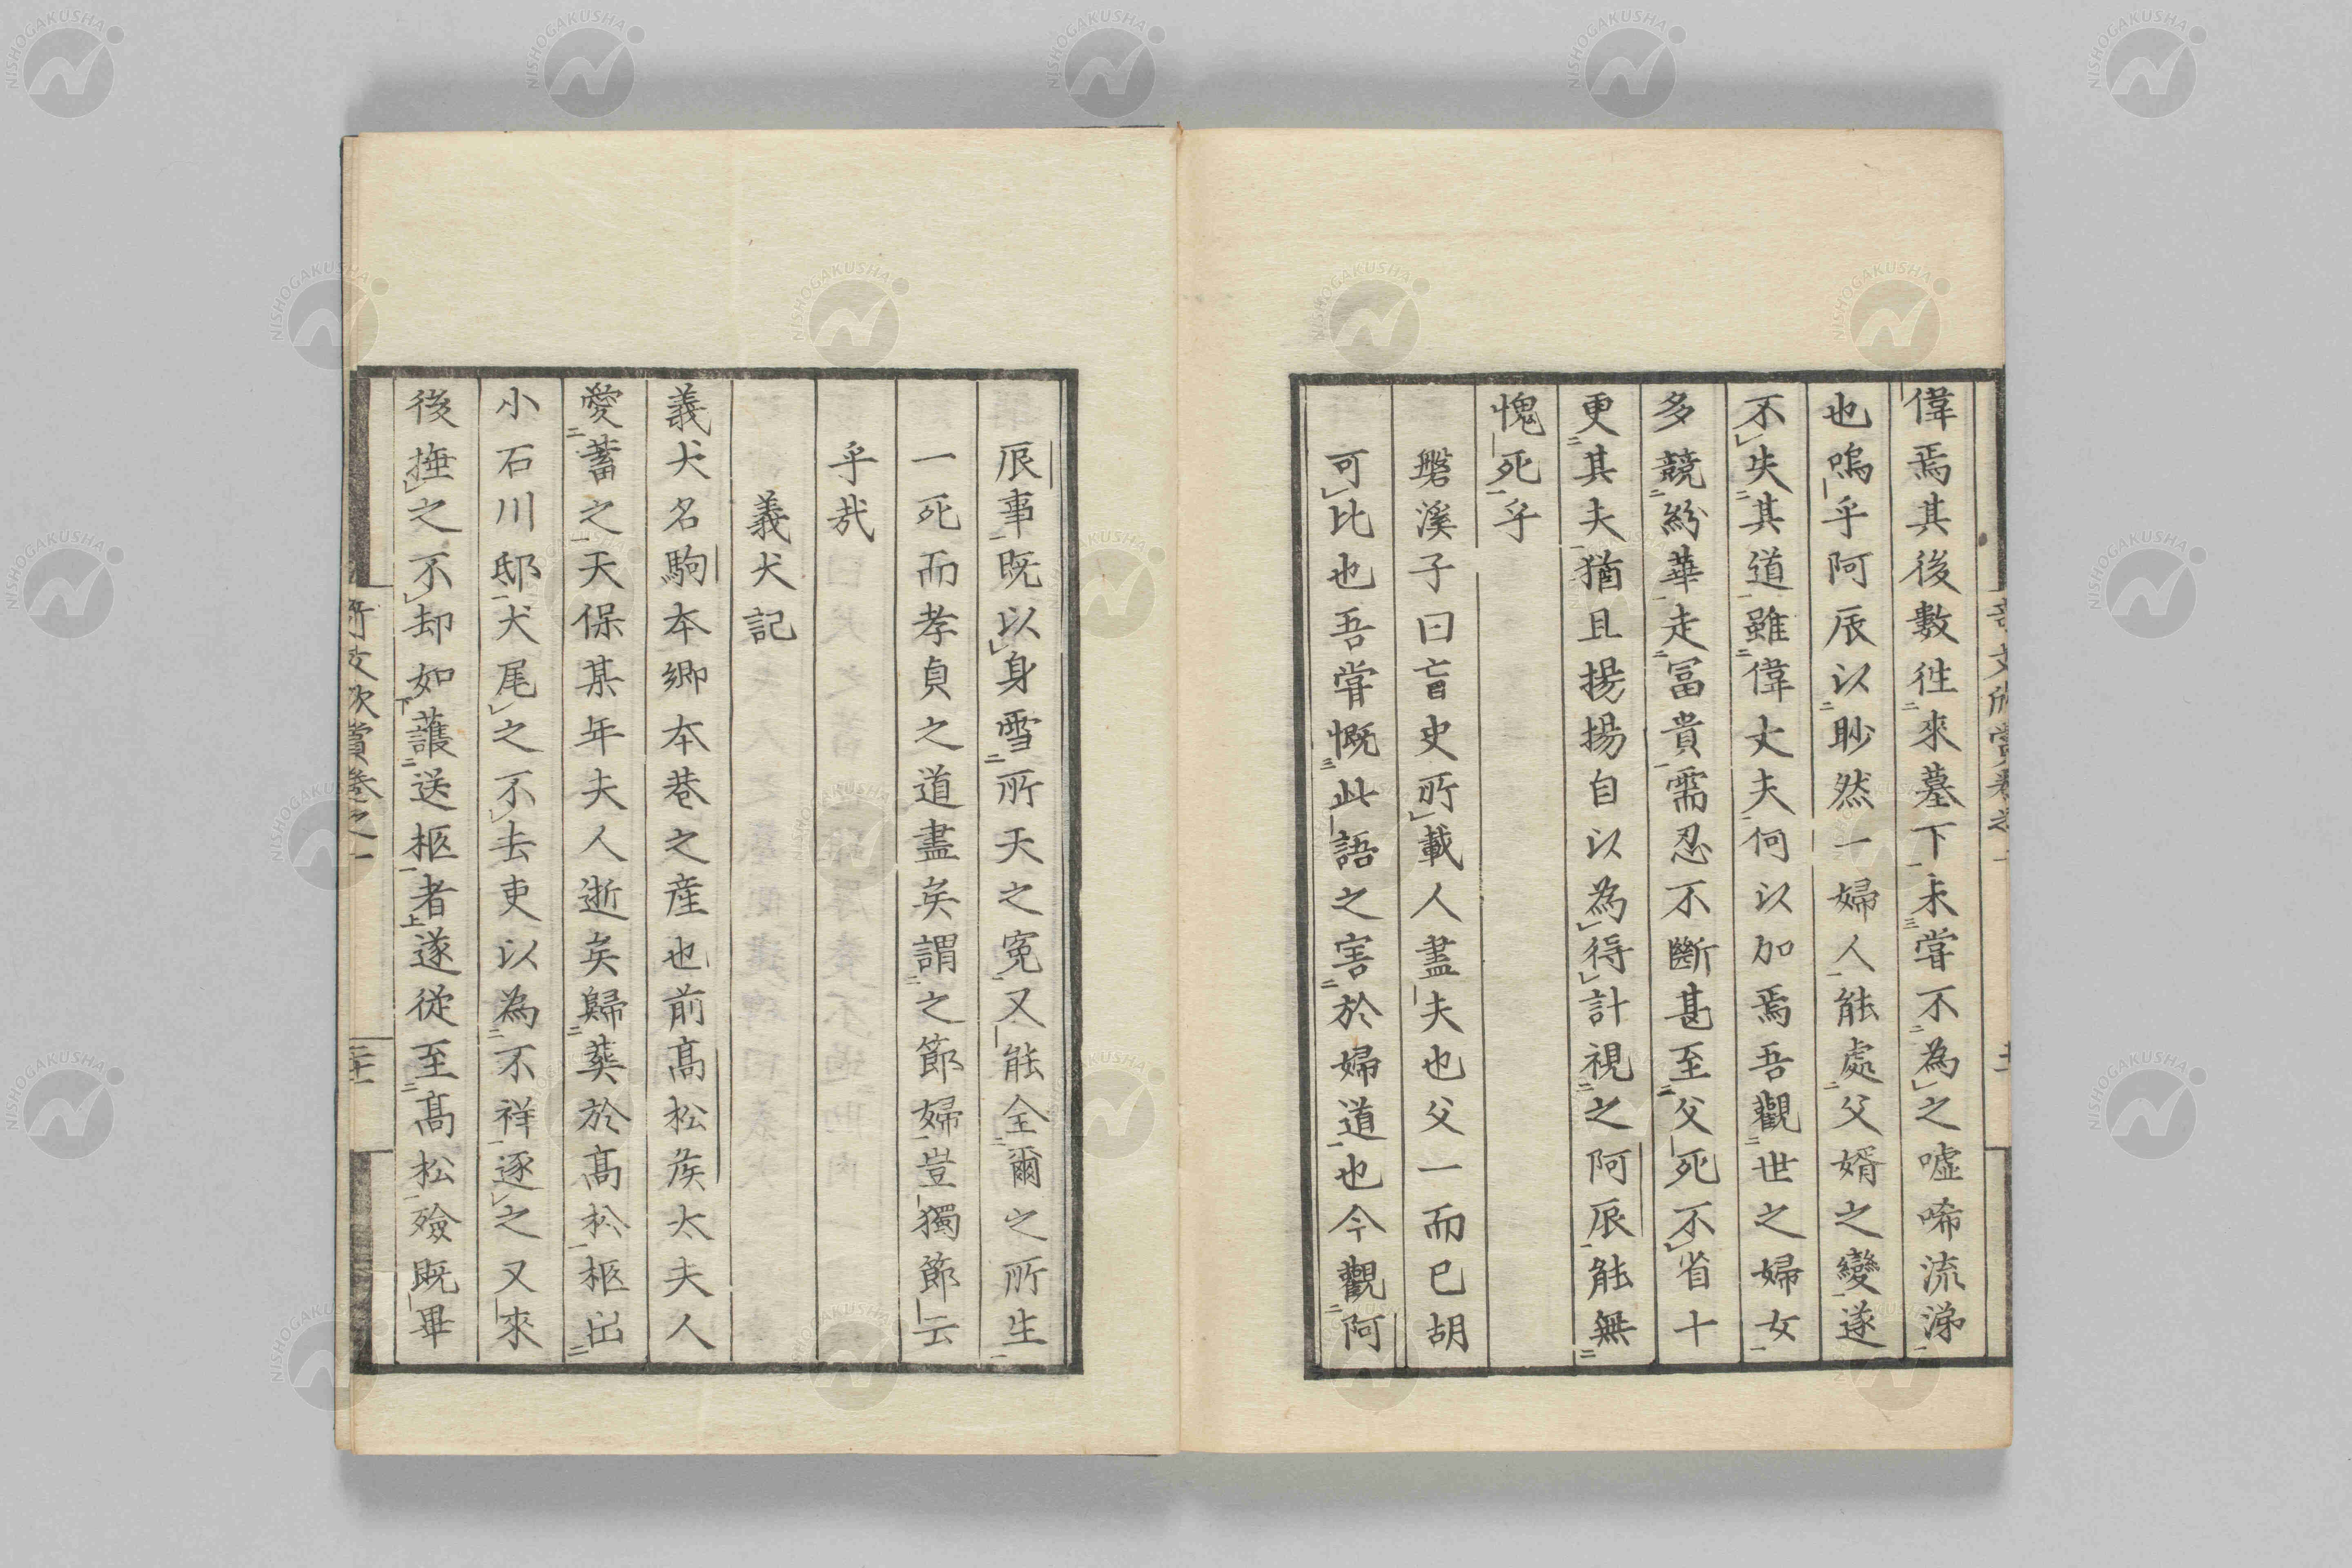 偉焉其後數往來墓下未嘗不為之噓唏流涕
也嗚乎阿辰以眇然一婦人能處父婿之變遂
不失其道雖偉丈夫何以加焉吾觀世之婦女
多競紛華走冨貴需忍不斷甚至父死不省十
更其夫猶且揚揚自以為得計視之阿辰能無
愧死乎
磐溪子曰盲史所載人盡夫也父一而已胡
可比也吾嘗慨此語之害於婦道也今觀阿
辰事既以身雪所天之寃又能全爾之所生
一死而孝貞之道盡矣謂之節婦豈獨節云
乎哉
義犬記
義犬名駒本郷本巷之産也前髙松侯太夫人
愛蓄之天保某年夫人逝矣歸葬於髙松柩出
小石川邸犬尾之不去吏以為不祥逐之又來
後捶之不却如護送柩者遂從至髙松殮既畢
奇文欣賞卷之一
NISHOGAKUSHA